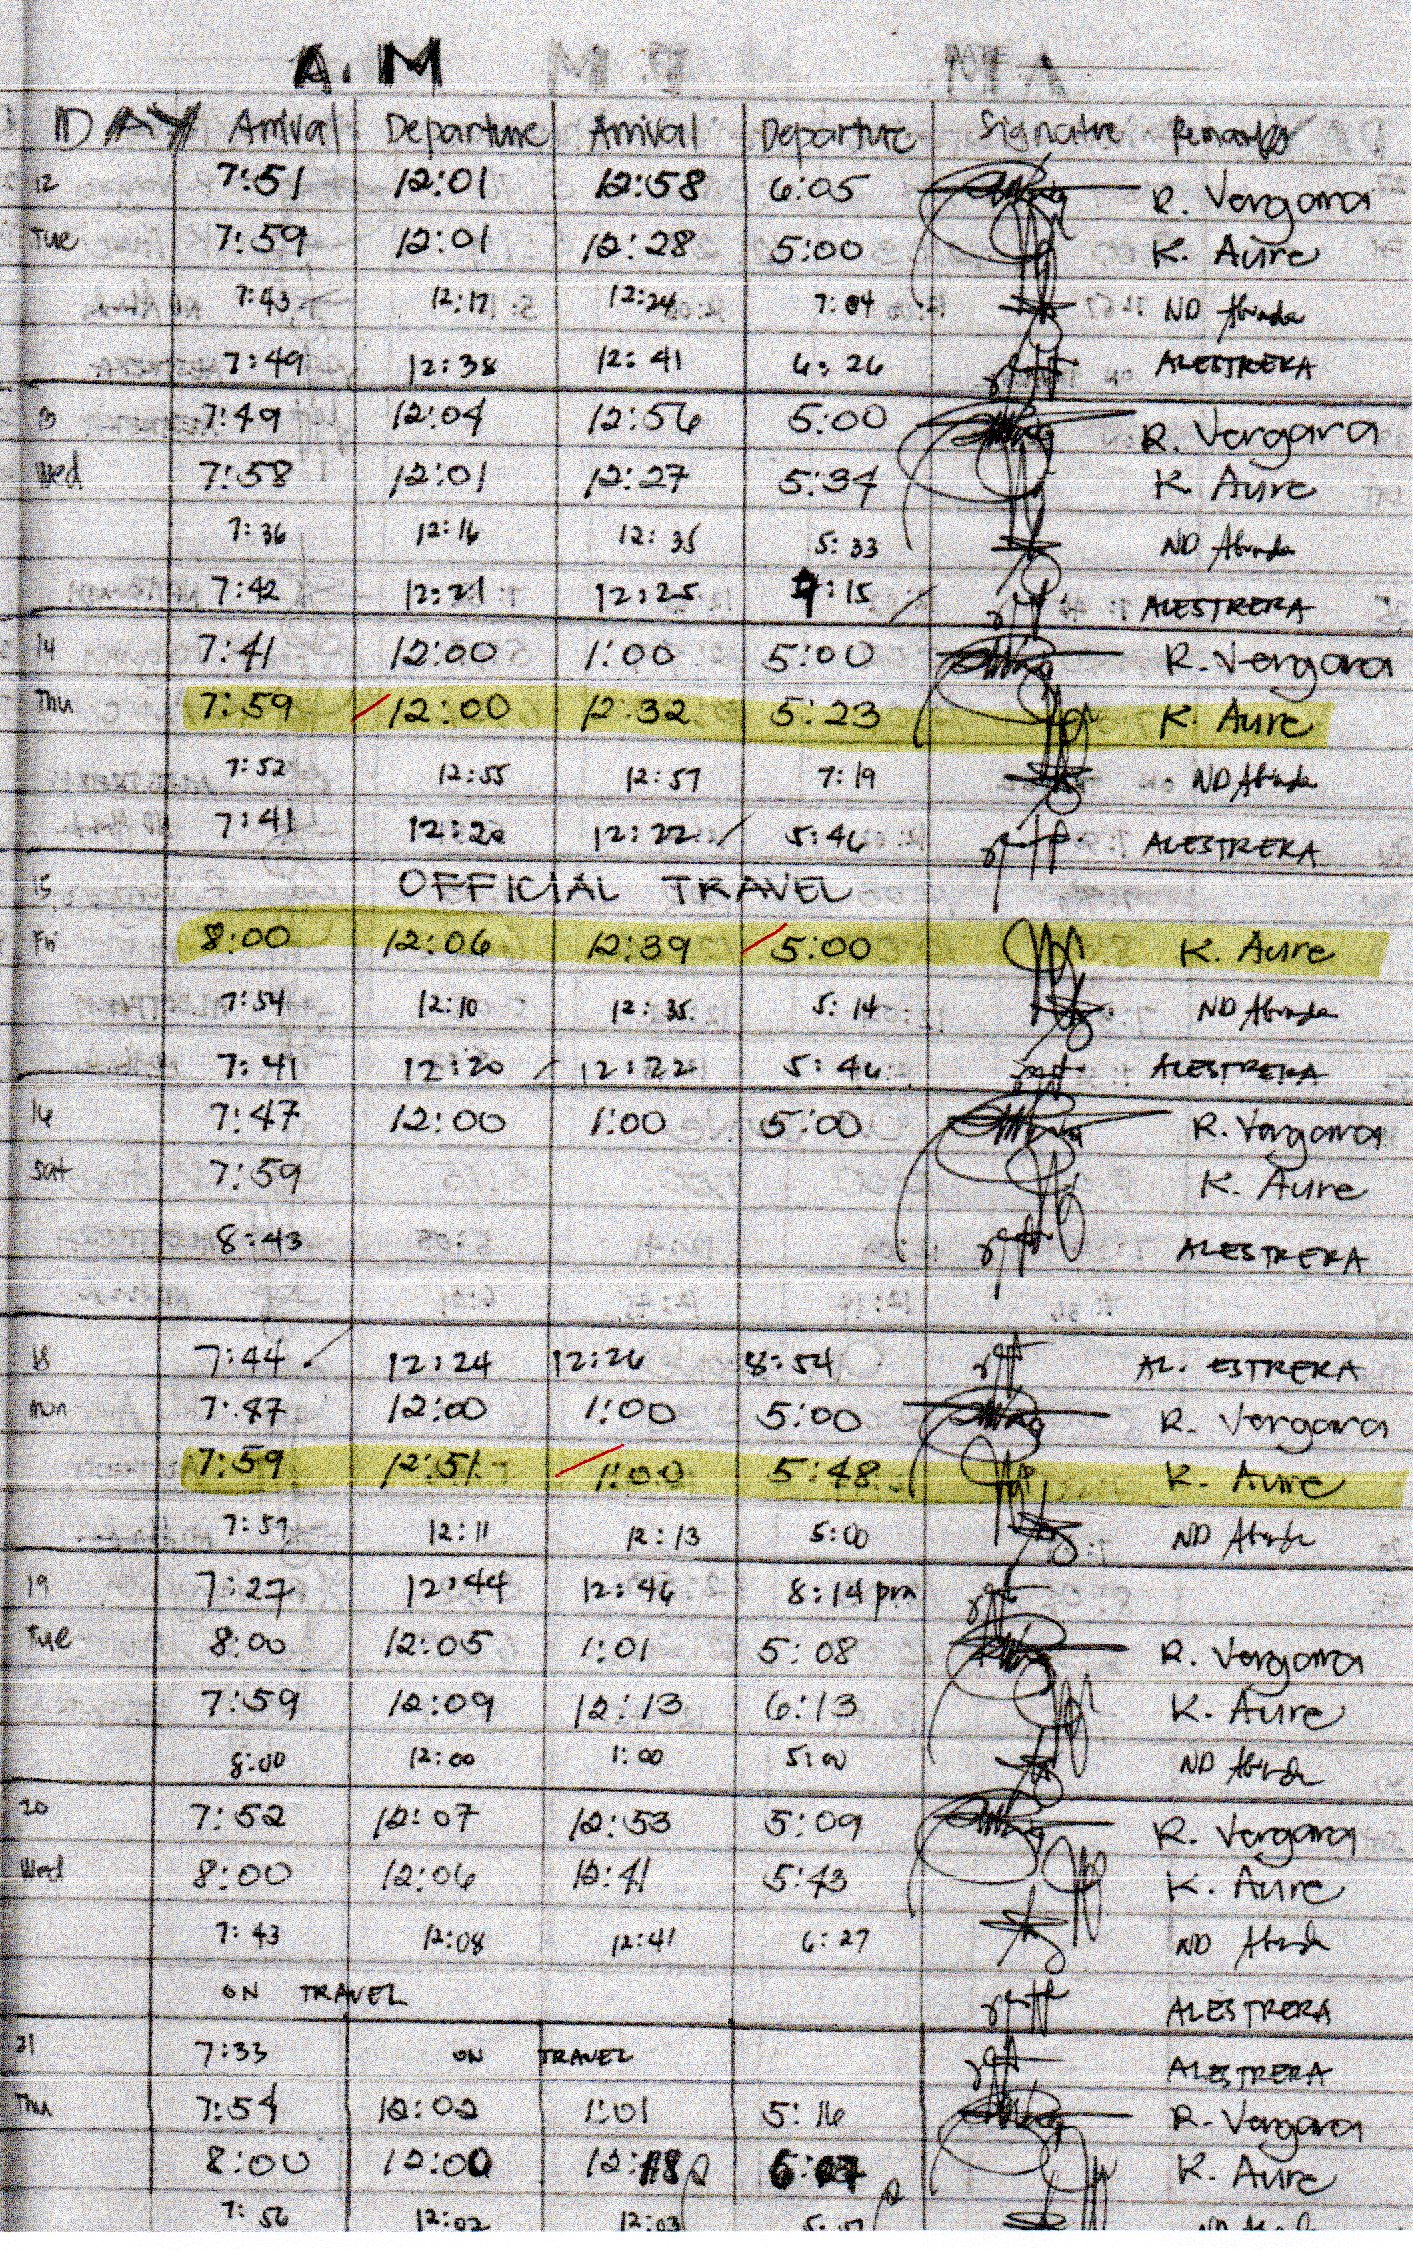 A.M
DAY Arrival Departure Arrival Departure Signature Remarks
12 7:51 12:01 12:58 6:05 R. Vergara
Tue 7:59 12:01 12:28 5:00 K. Aure
7:43 12:17 12:24 7:04 ND
7:49 12:38 12:41 6:26 ALESTRERA
13 7:49 12:04 12:56 5:00 R. Vergara
Wed 7:58 12:01 12:27 5:34 K. Aure
7:36 12:16 12:35 5:33 ND
7:42 12:21 12:25 7:15 ALESTRERA
14 7:41 12:00 1:00 5:00 R. Vergara
Thu 7:59 12:00 12:32 5:23 K. Aure
7:52 12:55 12:57 7:19 ND
7:41 12:20 12:22 5:46 ALESTRERA
15 OFFICIAL TRAVEL
Fri 8:00 12:06 12:39 5:00 K. Aure
7:54 12:10 12:35 5:14 ND
7:41 12:20 12:22 5:46 ALESTRERA
16 7:47 12:00 1:00 5:00 R. Vergara
Sat 7:59 K. Aure
8:43 ALESTRERA
18 7:44 12:24 12:26 8:54 AL. ESTRERA
Mon 7:47 12:00 1:00 5:00 R. Vergara
7:59 12:51 1:00 5:48 K. Aure
7:59 12:11 12:13 5:00 ND
19 7:27 12:44 12:46 8:14 pm
Tue 8:00 12:05 1:01 5:08 R. Vergara
7:59 12:09 12:13 6:13 K. Aure
8:00 12:00 1:00 5:00 ND
20 7:52 12:07 12:53 5:09 R. Vergara
Wed 8:00 12:06 12:41 5:43 K. Aure
7:43 12:08 12:41 6:27 ND
ON TRAVEL ALESTRERA
21 7:33 ON TRAVEL ALESTRERA
Thu 7:54 12:02 1:01 5:16 R. Vergara
8:00 12:00 K. Aure
7:56 12:02 12:03